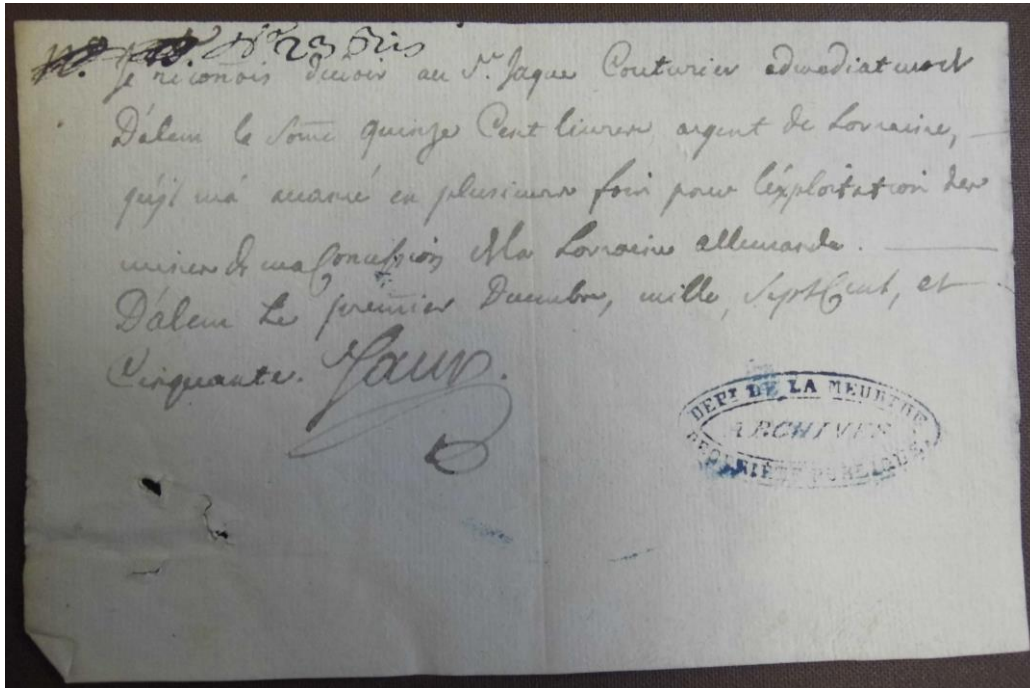 N° 23 bis
Je reconois devoir au Sr. Jaque Couturier admodiateur
Dalem la Some quinze Cent livres, argent de Lorraine,
qu'il m'a avancé en plusieurs fois pour l'éxploitation des
mines de ma Concession de la Lorraine allemande.
Dalem Le premier Decembre, mille, Sept Cent, et
Cinquante. Saur.
DEPT DE LA MEURTHE
ARCHIVES
PROPRIÉTÉ PUBLIQUE